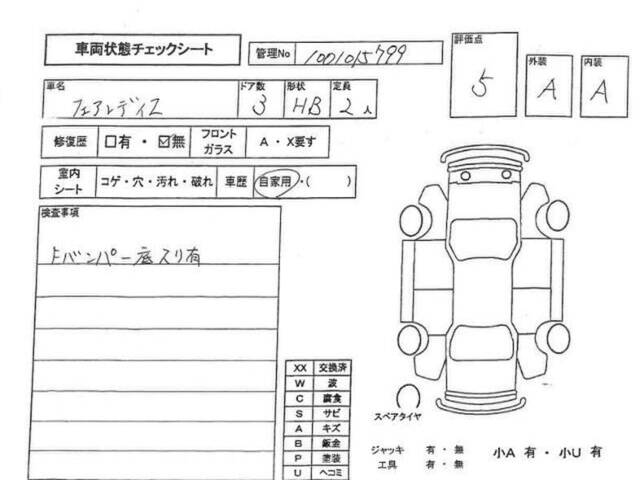 車両状態チェックシート
管理No 1001015799
評価点 5
外装 A
内装 A
車名 フェアレディZ
ドア数 3
形状 HB
定員 2人
修復歴 □有・☑無
フロントガラス A・X要す
室内シート コゲ・穴・汚れ・破れ
車歴 自家用・( )
検査事項
Fバンパー底スリ有
XX 交換済
W 波
C 腐食
S サビ
A キズ
B 鈑金
P 塗装
U ヘコミ
スペアタイヤ
ジャッキ 有・無
工具 有・無
小A 有・小U 有